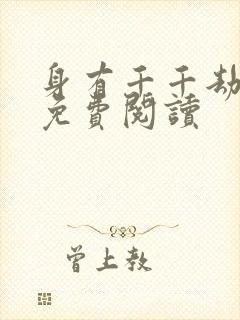 身有千千劫
免費閱讀
曾上教